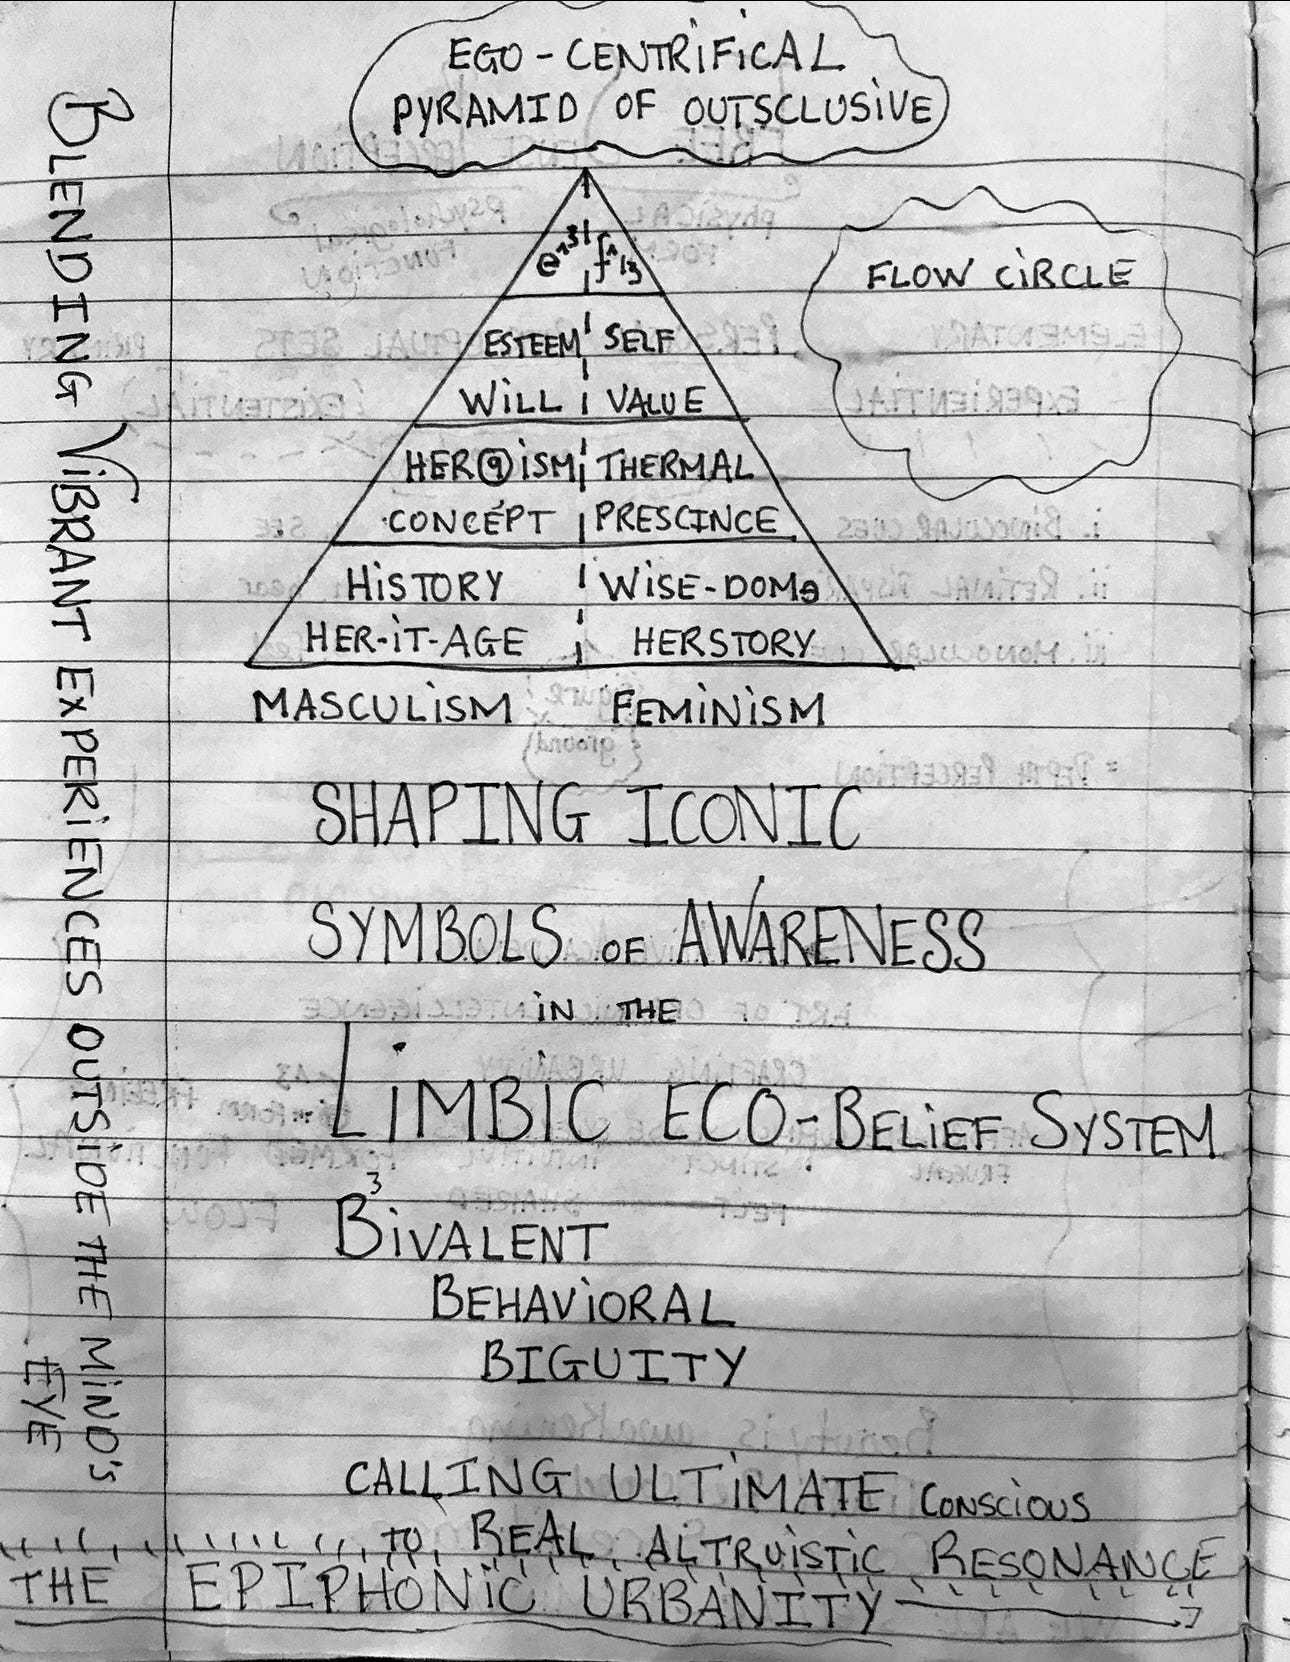 EGO-CENTRIFICAL
PYRAMID OF OUTSCLUSIVE
FLOW CIRCLE
ESTEEM SELF
WILL VALUE
THERMAL
CONCEPT PRESCINCE
HISTORY WISE-DOM
HER-IT-AGE HERSTORY
MASCULISM FEMINISM
SHAPING ICONIC
SYMBOLS OF AWARENESS
IN THE
LIMBIC ECO-BELIEF SYSTEM
B³IVALENT
BEHAVIORAL
BIGUITY
CALLING ULTIMATE CONSCIOUS
TO REAL ALTRUISTIC RESONANCE
THE EPIPHONIC URBANITY
BLENDING VIBRANT EXPERIENCES OUTSIDE THE MIND'S
EYE